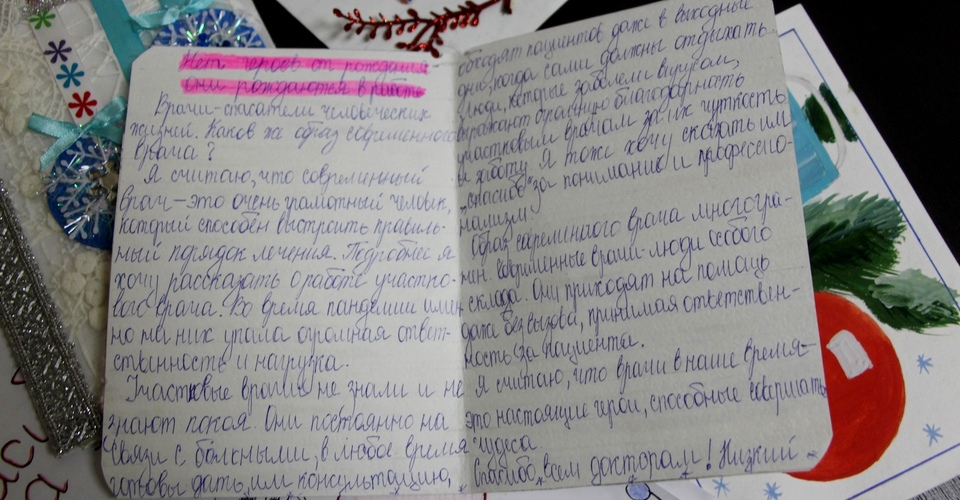 Нет героев от рождения -
они рождаются в работе
Врачи-спасатели человеческих
жизней. Каков же образ современного
врача?
Я считаю, что современный
врач-это очень грамотный человек,
который способен выстроить правиль-
ный порядок лечения. Подробнее я
хочу рассказать о работе участко-
вого врача. Во время пандемии имен
но на них упала огромная ответ-
ственность и нагрузка.
Участковые врачи не знали и не
знают покоя. Они постоянно на
связи с больными, в любое время
готовы дать им консультацию,
обходят пациентов даже в выходные
дни, когда сами должны отдыхать.
Люди, которые заболели вирусом,
выражают огромную благодарность
участковым врачам за их чуткость
и работу. Я тоже хочу сказать им
„спасибо" за понимание и професcио-
нализм.
Образ современного врача многогра-
нен. Современные врачи-люди особого
склада. Они приходят на помощь
даже без вызова, принимая ответствен-
ность за пациента.
Я считаю, что врачи в наше время-
это настоящие герои, способные совершать
чудеса
Спасибо, всем докторам! Низкий